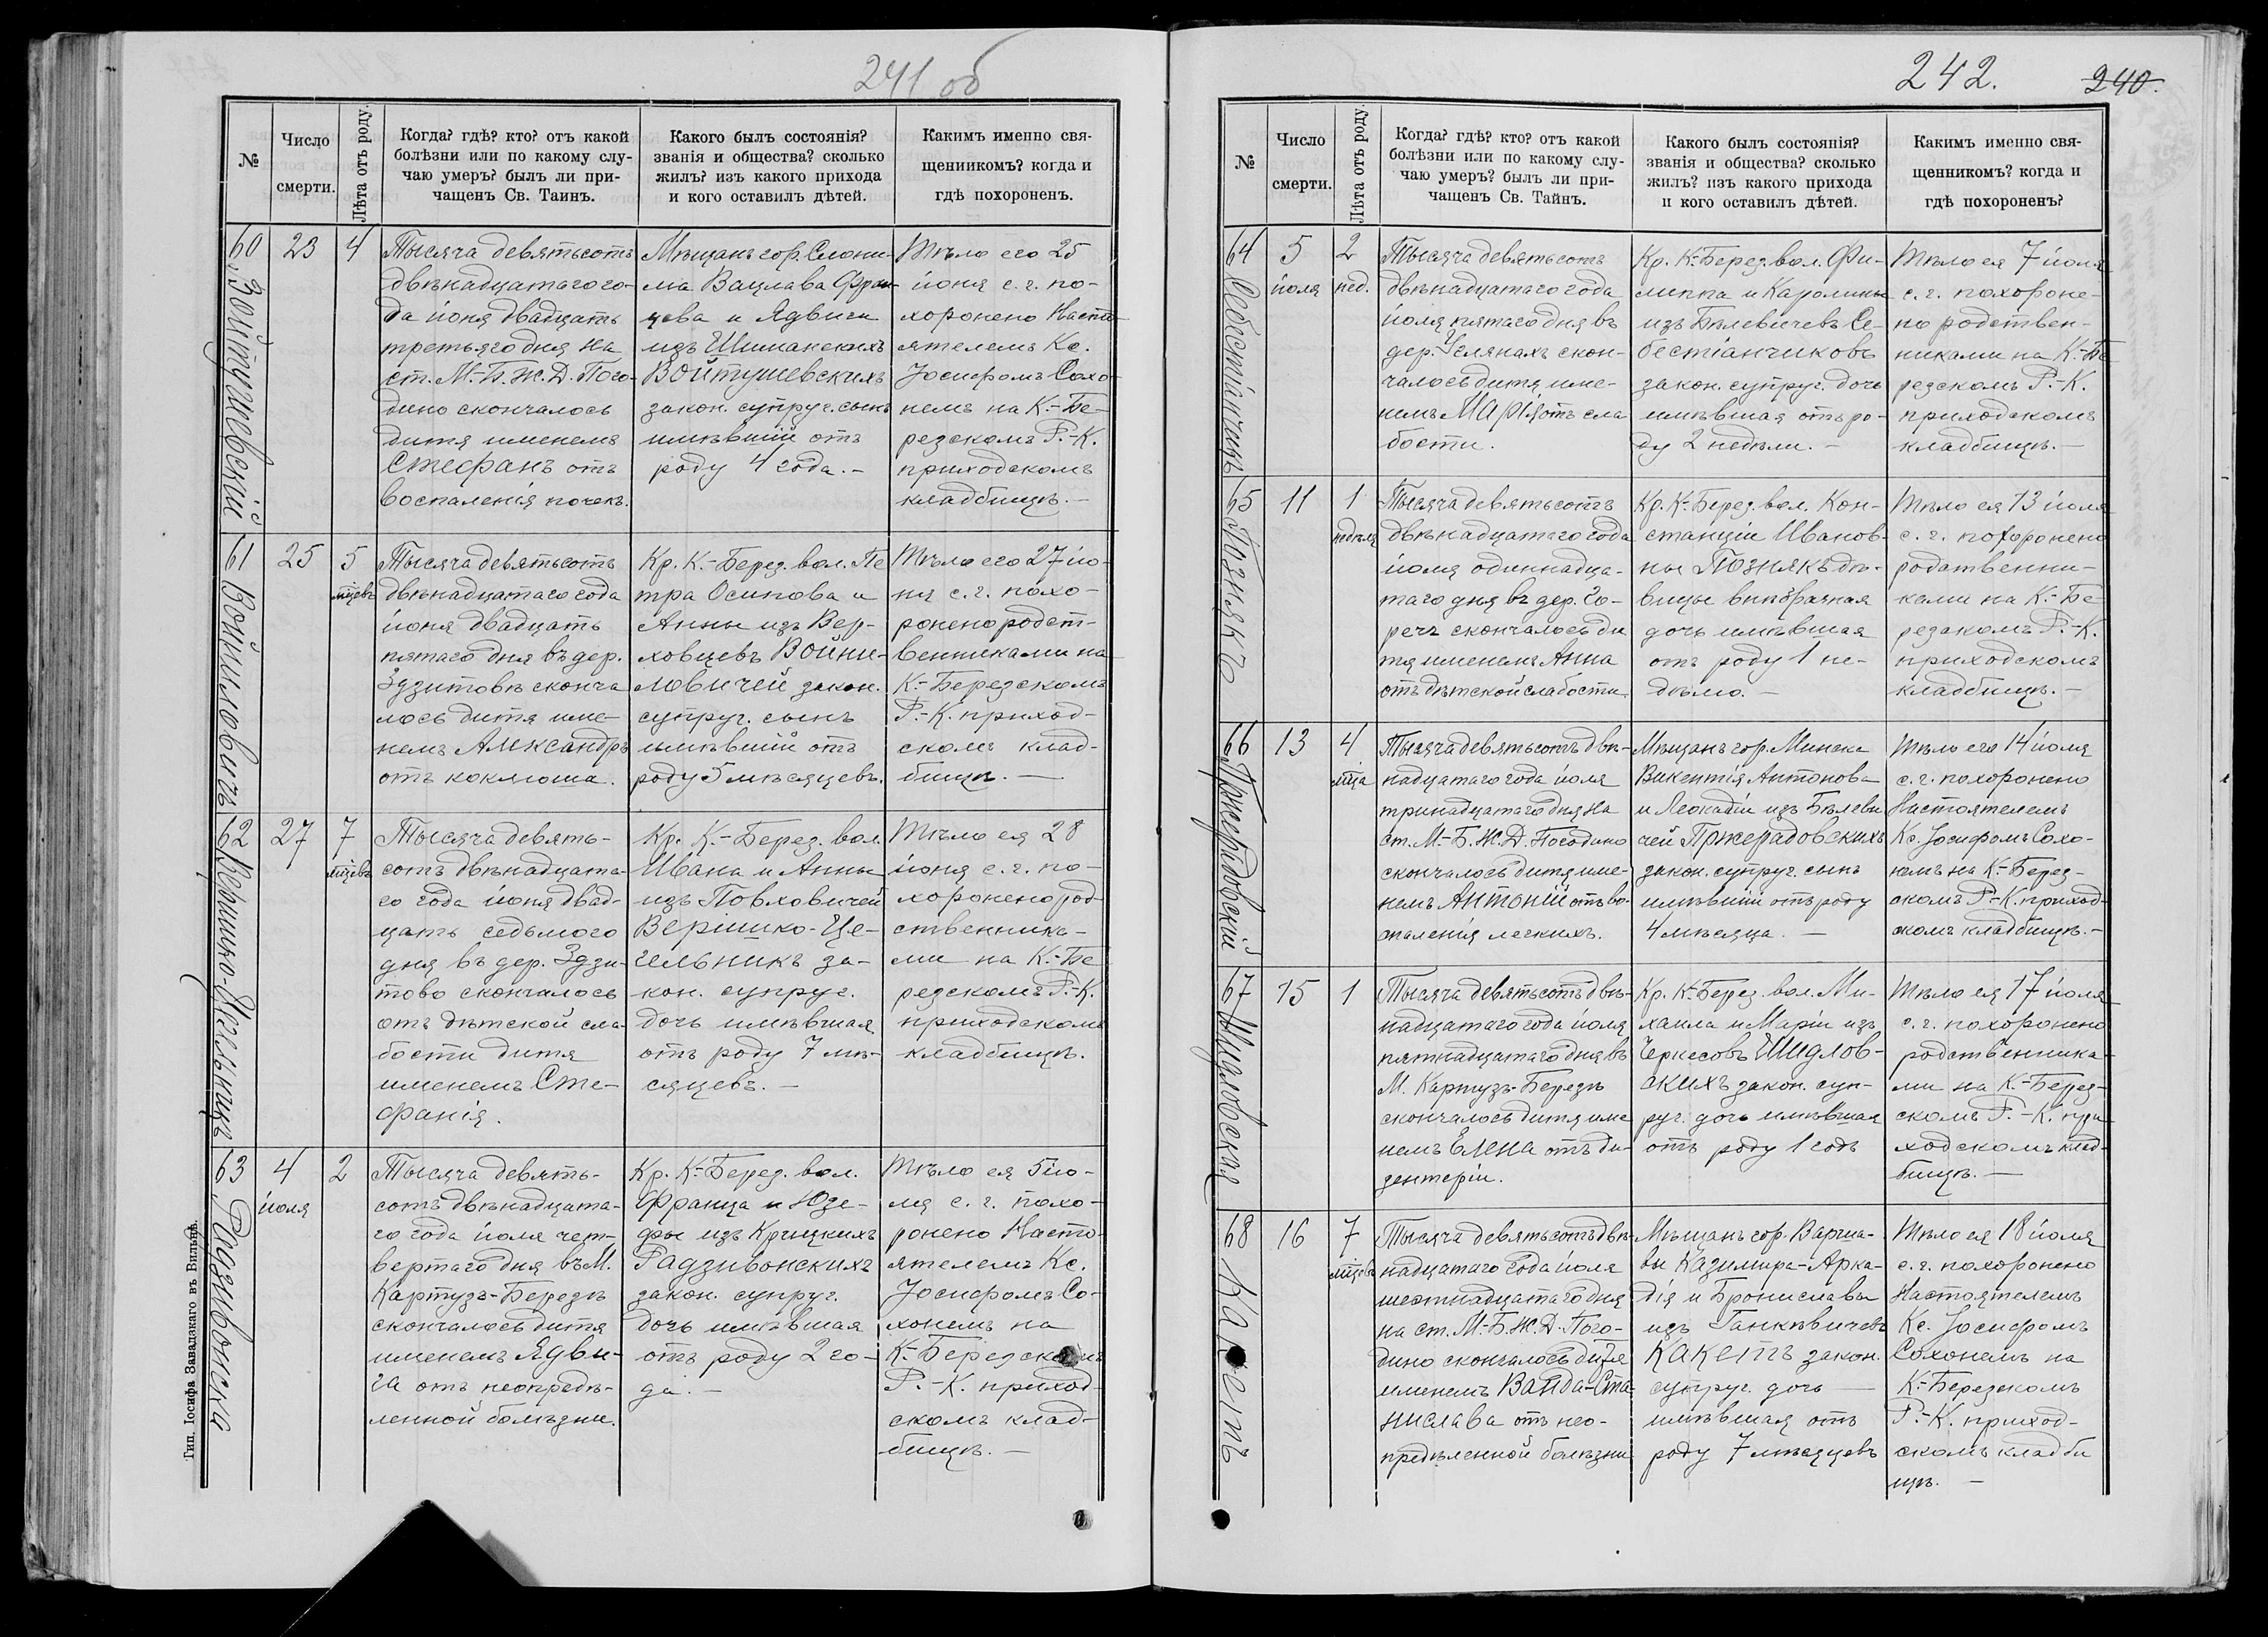 241 об
№
Число
смерти.
Лѣта отъ роду.
Когда? гдѣ? кто? отъ какой
болѣзни или по какому слу-
чаю умеръ? былъ ли при-
чащенъ Св. Таинъ.
Какого былъ состоянія?
званія и общества? сколько
жилъ? изъ какого прихода
и кого оставилъ дѣтей.
Какимъ именно свя-
щенникомъ? когда и
гдѣ похороненъ.
60
Войтушевскій
23
4
Тысяча девятьсотъ
двѣнадцатаго го-
да іюня двадцать
третьяго дня на
ст. М.-Б. Ж. Д. Пого-
дино скончалось
дитя именемъ
Стефанъ отъ
воспаленія почекъ.
Мѣщанъ гор. Слони-
ма Вацлава Фран-
цева и Ядвиги
изъ Шиманскихъ
Войтушевскихъ
закон. супруг. сынъ
имѣвшій отъ
роду 4 года. -
Тѣло его 25
іюня с. г. по-
хоронено Насто-
ятелемъ Кс.
Іосифомъ Сохо-
немъ на К.-Бе-
резскомъ Р.-К.
приходскомъ
кладбищѣ. -
61
Войниловичъ
25
5
мцевъ
Тысяча девятьсотъ
двѣнадцатаго года
іюня двадцать
пятаго дня въ дер.
Здзитовѣ сконча
лось дитя име-
немъ Александръ
отъ коклюша.
Кр. К.-Берез. вол. Пе
тра Осипова и
Анны изъ Вер-
ховцевъ Войни-
ловичей закон.
супруг. сынъ
имѣвшій отъ
роду 5 мѣсяцевъ.
Тѣло его 27 ію-
ня с. г. похо-
ронено родст-
венниками на
К.-Березскомъ
Р.-К. приход-
скомъ клад-
бищѣ. -
62
27
7
мцевъ
Тысяча девять-
сотъ двѣнадцата-
го года іюня двад-
цать седьмого
дня въ дер. Здзи-
тово скончалось
отъ дѣтской сла-
бости дитя
именемъ Сте-
фанія.
Кр. К.-Берез. вол.
Ивана и Анны
изъ Повховичей
закон. супруг.
дочь имѣвшая
отъ роду 7 мѣ-
сяцевъ. -
Тѣло ея 28
іюня с. г. по-
хоронено род-
ственника-
ми на К.-Бе
резскомъ Р.-К.
приходскомъ
кладбищѣ.
63
Радзивонска
4
іюля
2
Тысяча девять-
сотъ двѣнадцата-
го года іюля чет-
вертаго дня въ М.
Картузъ-Березѣ
скончалось дитя
именемъ Ядви-
га отъ неопредѣ-
ленной болѣзни.
Кр. К.-Берез. вол.
Франца и Юзе-
фы изъ Крицкихъ
Радзивонскихъ
закон. супруг.
дочь имѣвшая
отъ роду 2 го-
да. -
Тѣло ея 5 ію-
ля с. г. похо-
ронено Насто-
ятелемъ Кс.
Іосифомъ Со-
хонемъ на
К.-Березскомъ
Р.-К. приход-
скомъ клад-
бищѣ. -
Тип. Іосифа Завадзкаго въ Вильнѣ.
242.
240.
№
Число
смерти.
Лѣта отъ роду.
Когда? гдѣ? кто? отъ какой
болѣзни или по какому слу-
чаю умеръ? былъ ли при-
чащенъ Св. Тайнъ.
Какого былъ состоянія?
званія и общества? сколько
жилъ? изъ какого прихода
и кого оставилъ дѣтей.
Какимъ именно свя-
щенникомъ? когда и
гдѣ похороненъ?
64
Себестіанчикъ
5
іюля
2
нед.
Тысяча девятьсотъ
двѣнадцатаго года
іюля пятаго дня въ
дер. Углянахъ скон-
чалось дитя име-
немъ Марія отъ сла
бости.
Кр. К.-Берез. вол. Фи-
липпа и Каролины
изъ Бѣлевичевъ Се-
бестіанчиковъ
закон. супруг. дочь
имѣвшая отъ ро-
ду 2 недѣли. -
Тѣло ея 7 іюля
с. г. похороне-
но родствен-
никами на К.-Бе
резскомъ Р.-К.
приходскомъ
кладбищѣ. -
65
Познякъ
11
1
недѣля
Тысяча девятьсотъ
двѣнадцатаго года
іюля одиннадца-
таго дня въ дер. Го-
речъ скончалось ди
тя именемъ Анна
отъ дѣтской слабости
Кр. К.-Берез. вол. Кон-
станціи Иванов-
ны Познякъ дѣ-
вицы внѣбрачная
дочь имѣвшая
отъ роду 1 не-
дѣлю. -
Тѣло ея 13 іюля
с. г. похоронено
родственни-
ками на К.-Бе
резскомъ Р.-К.
приходскомъ
кладбищѣ. -
66
Пржерадовскій
13
4
мца
Тысяча девятьсотъ двѣ-
надцатаго года іюля
тринадцатаго дня на
ст. М.-Б. Ж. Д. Погодино
скончалось дитя име-
немъ Антоній отъ во-
спаленія легкихъ.
Мѣщанъ гор. Минска
Викентія Антонова
и Леокадіи изъ Бѣлеви
чей Пржерадовскихъ
закон. супруг. сынъ
имѣвшій отъ роду
4 мѣсяца. -
Тѣло его 14 іюля
с. г. похоронено
Настоятелемъ
Кс. Іосифомъ Сохо-
немъ на К.-Берез-
скомъ Р.-К. приход-
скомъ кладбищѣ. -
67
Шидловская
15
1
Тысяча девятьсотъ двѣ-
надцатаго года іюля
пятнадцатаго дня въ
М. Картузъ-Березѣ
скончалось дитя име
немъ Елена отъ ди-
зентеріи.
Кр. К.-Берез. вол. Ми-
хаила и Маріи изъ
Черкесовъ Шидлов-
скихъ закон. суп-
руг. дочь имѣвшая
отъ роду 1 годъ
Тѣло ея 17 іюля
с. г. похоронено
родственника-
ми на К.-Берез-
скомъ Р.-К. при
ходскомъ клад-
бищѣ. -
68
16
7
мцевъ
Тысяча девятьсотъ двѣ-
надцатаго года іюля
шестнадцатаго дня
на ст. М.-Б. Ж. Д. Пого-
дино скончалось дитя
именемъ Ванда-Ста-
нислава отъ нео-
предѣленной болѣзни
Мѣщанъ гор. Варша-
вы Казимира-Арка-
дія и Брониславы
изъ Ганкевичевъ
закон.
супруг. дочь -
имѣвшая отъ
роду 7 мѣсяцевъ
Тѣло ея 18 іюля
с. г. похоронено
Настоятелемъ
Кс. Іосифомъ
Сохонемъ на
К.-Березскомъ
Р.-К. приход-
скомъ кладби
щѣ. -